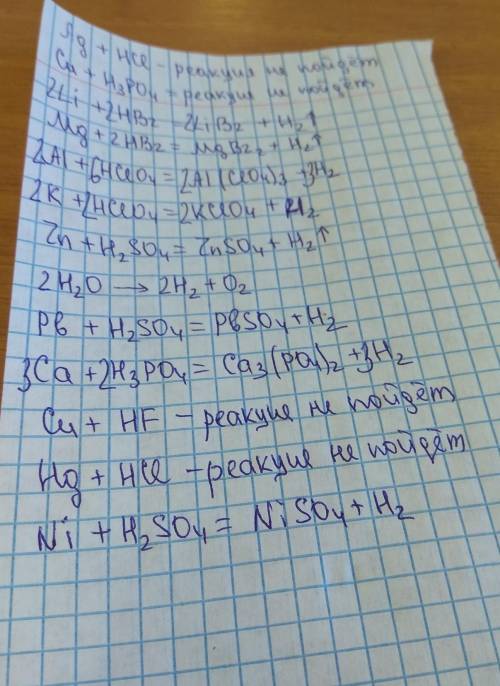 Ag + HCl - реакция не пойдёт
Cu + H₃PO₄ = реакция не пойдёт
2Li + 2HBr = 2LiBr + H₂↑
Mg + 2HBr = MgBr₂ + H₂↑
2Al + 6HClO₄ = 2Al(ClO₄)₃ + 3H₂
2K + 2HClO₄ = 2KClO₄ + H₂
Zn + H₂SO₄ = ZnSO₄ + H₂↑
2H₂O → 2H₂ + O₂
Pb + H₂SO₄ = PbSO₄ + H₂
3Ca + 2H₃PO₄ = Ca₃(PO₄)₂ + 3H₂
Cu + HF - реакция не пойдёт
Hg + HCl - реакция не пойдёт
Ni + H₂SO₄ = NiSO₄ + H₂